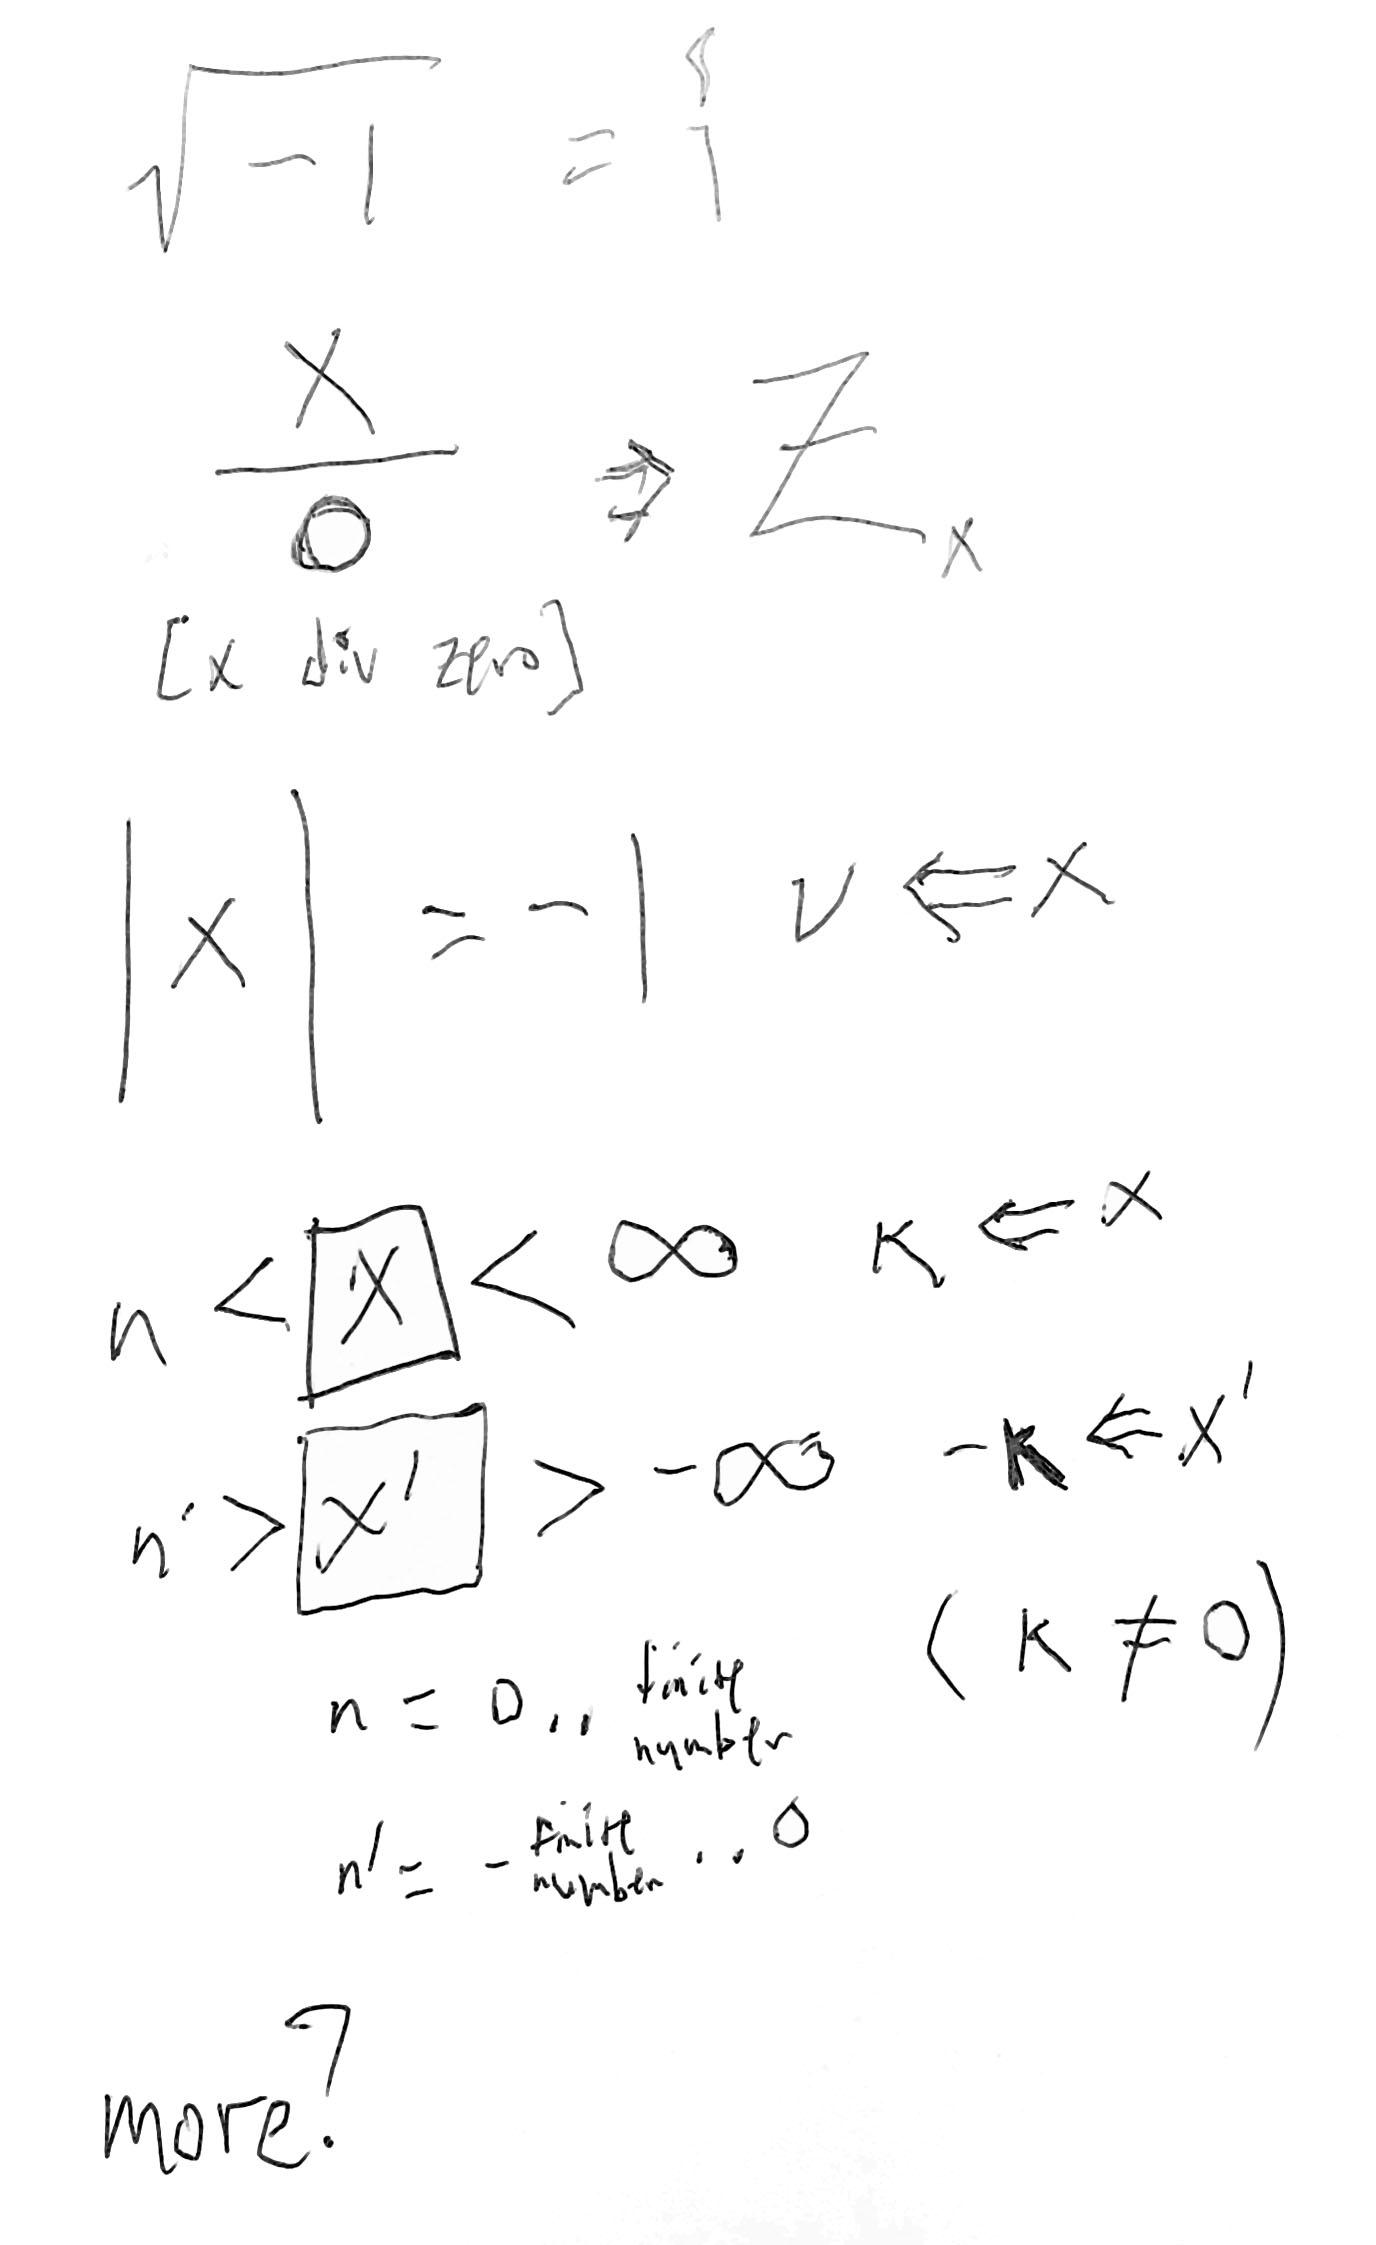 √-1 = i
x
0
⇒ Z_x
[x div zero]
|x| = -1 ν ⇐ x
n < x < ∞ κ ⇐ x
n' > x' > -∞ -κ ⇐ x'
(κ ≠ 0)
n = 0.. finite number
n' = - finite number ..0
more?